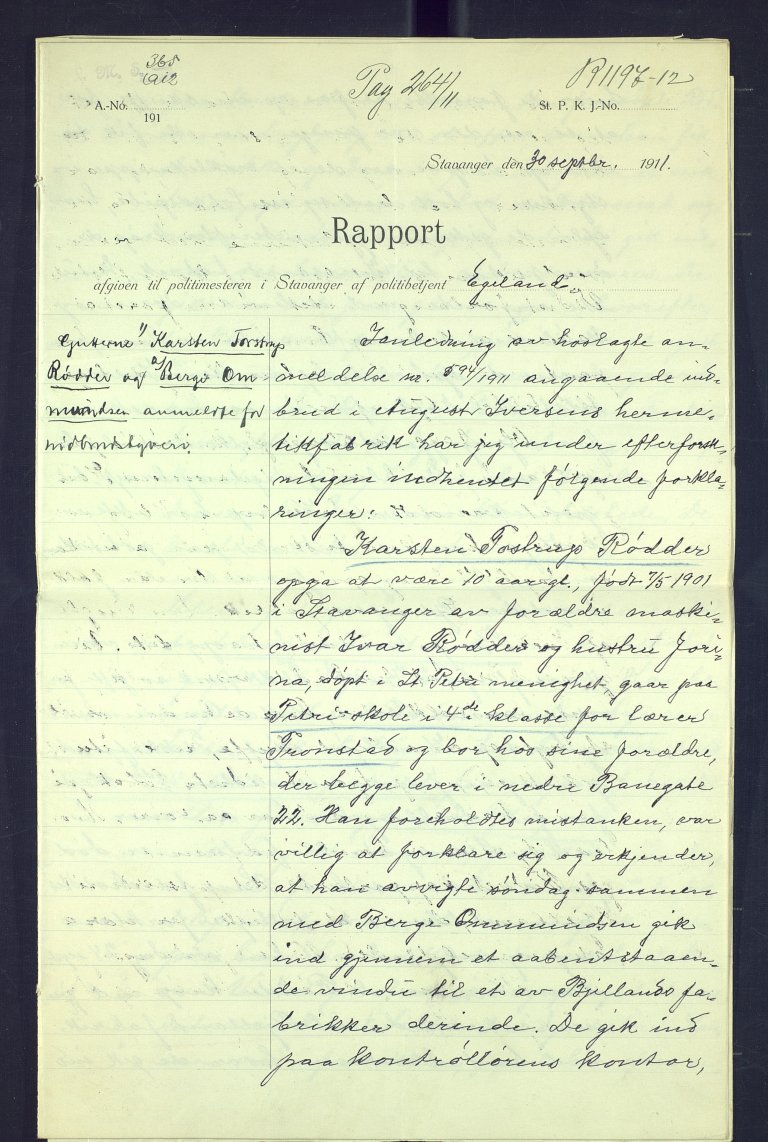 365
1912
Pag 264/11
R1197-12
A.-No.
191
St. P. K. J.-No.
Stavanger den 30 septbr. 1911.
Rapport
afgiven til politimesteren i Stavanger af politibetjent Egeland
Gutterne Karsten Torstrup
Rødder og Berge Om-
mundsen anmeldte for
indbrudstyveri.
I anledning av hoslagte an-
meldelse nr. 594/1911 angaaende ind-
brud i August Iversens herme-
tikfabrik har jeg under efterforsk-
ningen indhentet følgende forkla-
ringer:
Karsten Tostrup Rødder
opga at være 10 aar gl., født 7/5 1901
i Stavanger av forældre maski-
nist Ivar Rødder og hustru Jori-
na, døpt i St Petri menighet, gaar paa
Petri skole i 4de klasse for lærer
Tronstad og bor hos sine forældre,
der begge lever i nedre Banegate
22. Han foreholdtes mistanken, var
villig at forklare sig og erkjender,
at han avvigte søndag sammen
med Berge Ommundsen gik
ind gjennem et aabentstaaen-
de vindu til et av Bjellands fa-
brikker derinde. De gik ind
paa kontrollørens kontor,